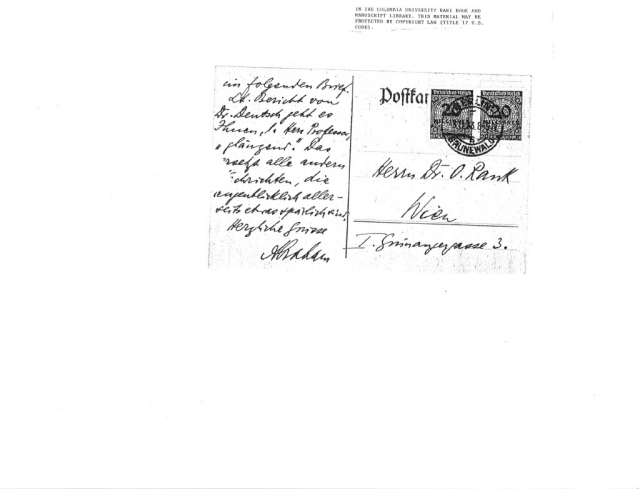 IN THE COLUMBIA UNIVERSITY RARE BOOK AND
MANUSCRIPT LIBRARY. THIS MATERIAL MAY BE
PROTECTED BY COPYRIGHT LAW (TITLE 17 U.S.
CODE).
im folgenden Brief.
Lt. Bericht von
Dr. Deutsch geht es
Ihnen, l. Herr Professor,
„glänzend." Das
ersetzt alle andern
chrichten, die
augenblicklich aller-
seits etwas spärlich sind.
Herzliche Grüsse
Abraham
Postkar
20 20
BERLIN
GRUNEWALD
Herrn Dr. O. Rank
Wien
I. Grünangergasse 3.